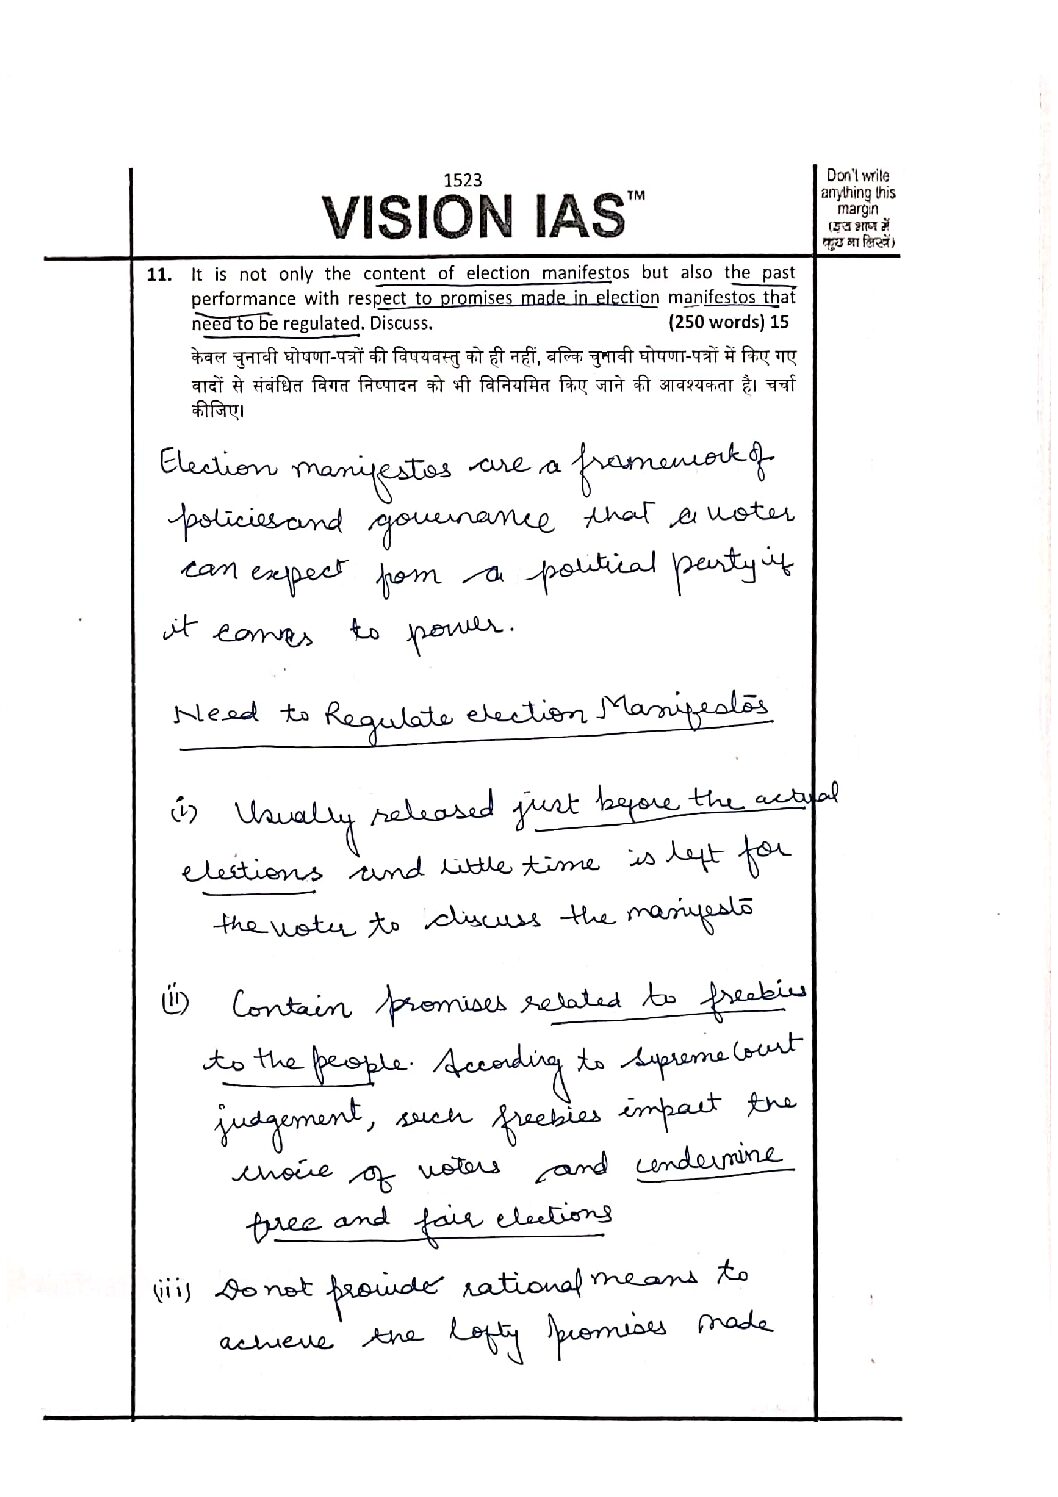 1523
VISION IAS™
Don't write
anything this
margin
(इस भाग में
कुछ ना लिखें)
11. It is not only the content of election manifestos but also the past
performance with respect to promises made in election manifestos that
need to be regulated. Discuss. (250 words) 15
केवल चुनावी घोषणा-पत्रों की विषयवस्तु को ही नहीं, बल्कि चुनावी घोषणा-पत्रों में किए गए
वादों से संबंधित विगत निष्पादन को भी विनियमित किए जाने की आवश्यकता है। चर्चा
कीजिए।
Election manifestos are a framework of
policies and governance that a voter
can expect from a political party if
it comes to power.
Need to Regulate election Manifestos
(i) Usually released just before the actual
elections and little time is left for
the voter to discuss the manifesto
(ii) Contain promises related to freebies
to the people. According to Supreme Court
judgement, such freebies impact the
choice of voters and undermine
free and fair elections
(iii) Do not provide rational means to
achieve the lofty promises made